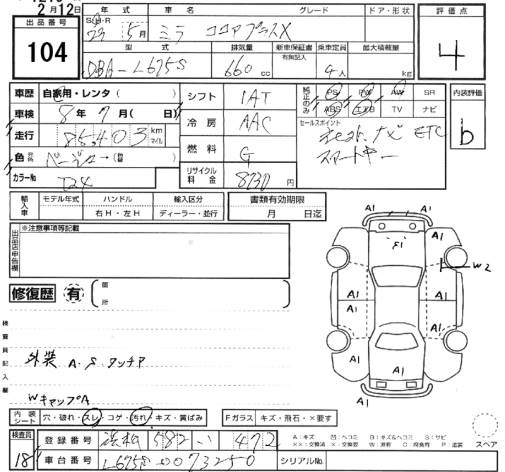 2月12日
出品番号 104
年式 S・H・R 23年 5月
車名 ミラ ココアプラスX
グレード
ドア・形状
評価点 4
型式 DBA-L675S
排気量 660 cc
新車保証書 有無記入
乗車定員 4人
最大積載量 kg
車歴 自家用・レンタ
車検 8年7月
走行 85,403 km マイル
色
カラーNo T24
シフト IAT
冷房 AAC
燃料 G
リサイクル料金 8230円
純正のみ PS PW AW SR
ABS エアB TV ナビ
セールスポイント
社外ナビ ETC
スマートキー
内装評価 b
輸入車 モデル年式 ハンドル 右H・左H 輸入区分 ディーラー・並行
書類有効期限 月 日迄
出品店申告欄 ※注意事項等記載
修復歴 有 箇所
検査員記入欄
外装 A.S.タッチア
WキャップA
A1 A1 A1 S1 A1 W2 A1 A1 A1 A1 A1 A1
内装シート 穴・破れ・スレ・コゲ・汚れ・キズ・黄ばみ
Fガラス キズ・飛石・×要す
検査員 18
登録番号 浜松 582 い 472
車台番号 L675S-0073250
シリアルNo.
A:キズ 凹:ヘコミ B:キズ&ヘコミ S:サビ
スペア